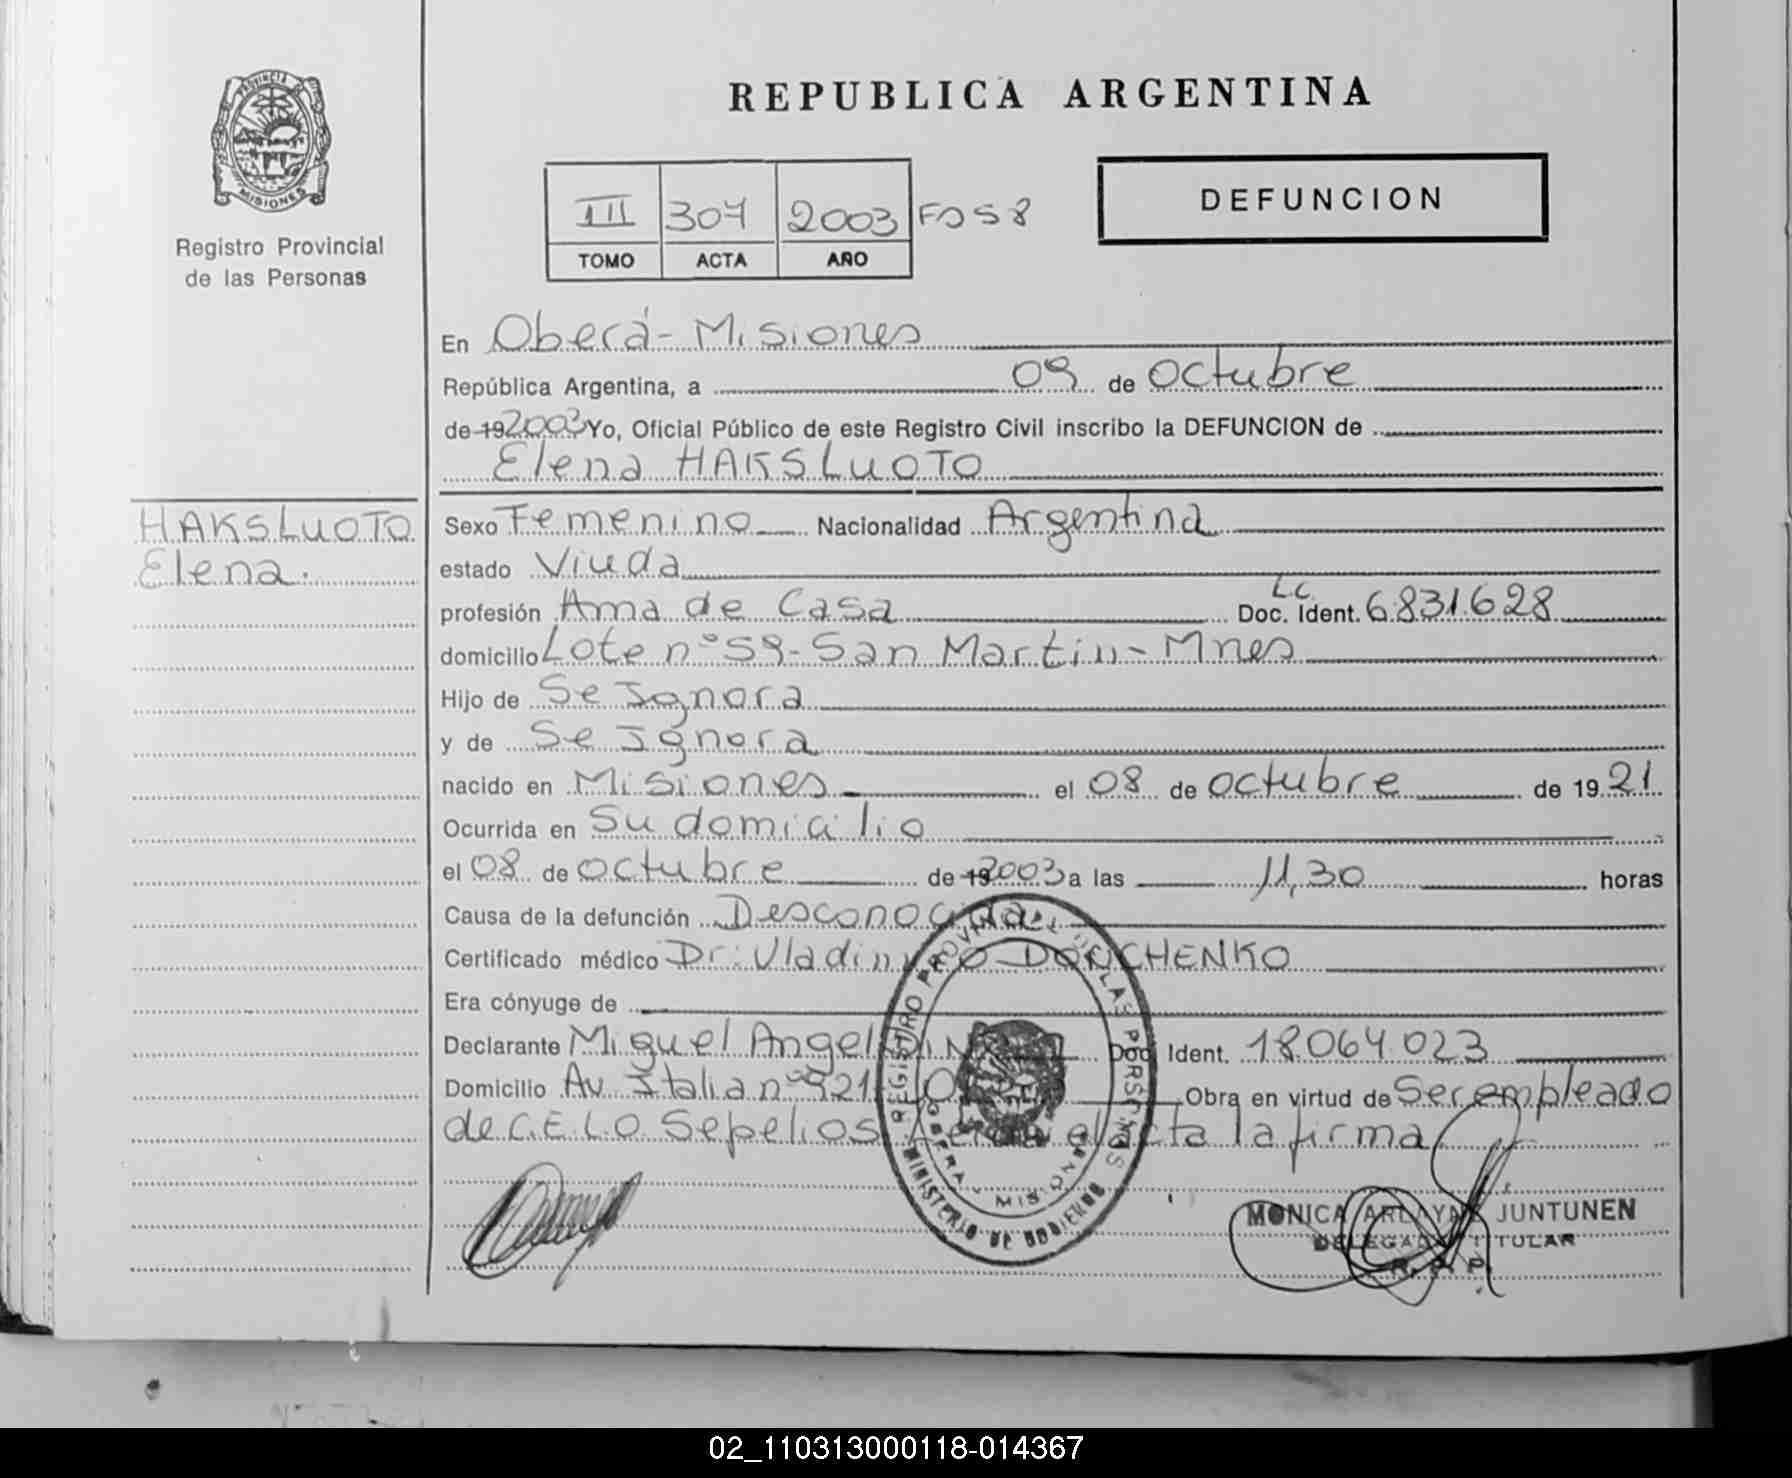 PROVINCIA DE
MISIONES
Registro Provincial
de las Personas
REPUBLICA ARGENTINA
III 307 2003 Fº 58
TOMO ACTA AÑO
DEFUNCION
En Oberá - Misiones
República Argentina, a 09 de octubre
de 19 2003 Yo, Oficial Público de este Registro Civil inscribo la DEFUNCION de
Elena HAKSLUOTO
HAKSLUOTO
Elena.
Sexo Femenino Nacionalidad Argentina
estado Viuda
profesión Ama de Casa Doc. Ident. LC 6.831.628
domicilio Lote nº 59 - San Martin - Mnes
Hijo de Se Ignora
y de Se Ignora
nacido en Misiones el 08 de octubre de 19 21
Ocurrida en Su domicilio
el 08 de octubre de 19 2003 a las 11,30 horas
Causa de la defunción Desconocida
Certificado médico Dr: Vladimiro DONCHENKO
Era cónyuge de
Declarante Miguel Angel Doc. Ident. 18.064.023
Domicilio Av. Italia nº 921 Obra en virtud de Ser empleado
de C.E.L.O. Sepelios. Acta la firma
REGISTRO PROVINCIAL DE LAS PERSONAS
OBERA - MISIONES
MINISTERIO DE GOBIERNO
MONICA ARLAYNE JUNTUNEN
DELEGADA TITULAR
R. P. P.
02_110313000118-014367